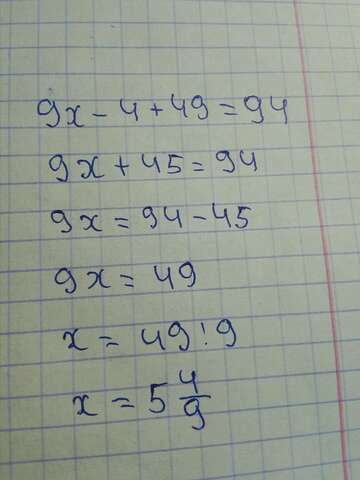 9x - 4 + 49 = 94
9x + 45 = 94
9x = 94 - 45
9x = 49
x = 49 : 9
x = 5 4/9